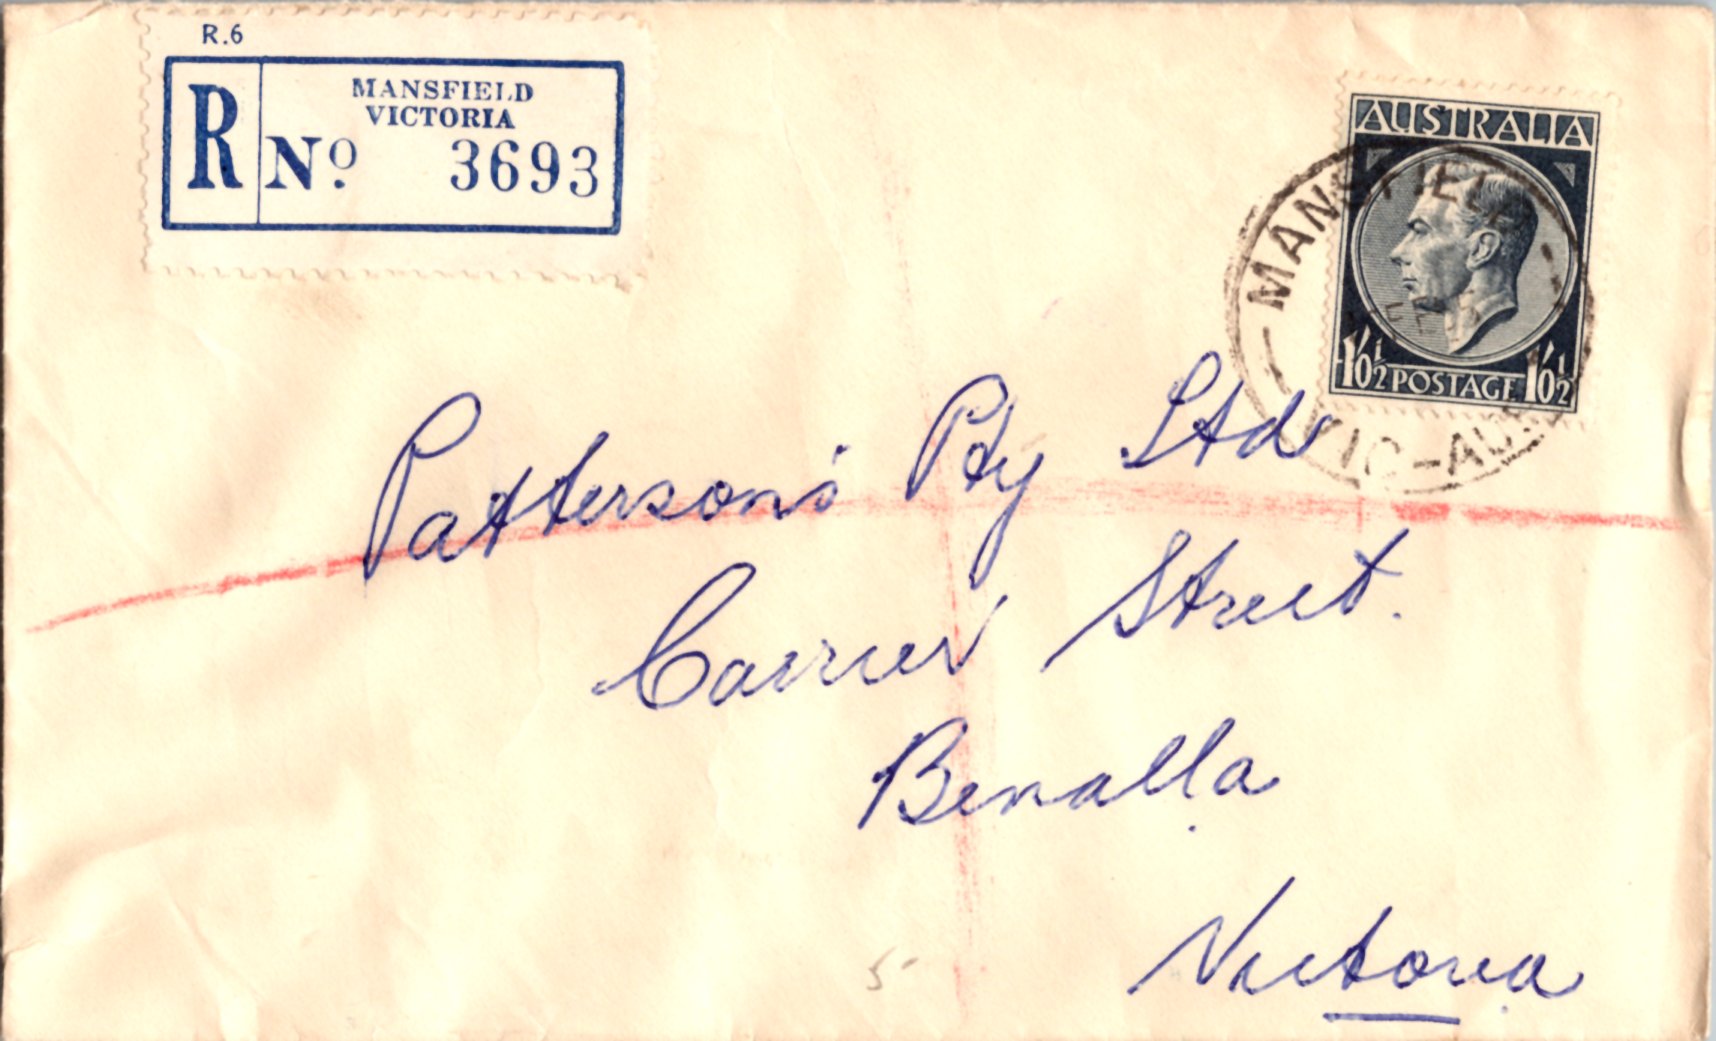 R.6
R
MANSFIELD
VICTORIA
Nº 3693
AUSTRALIA
1'0½ POSTAGE 1'0½
MANSFIELD
VIC-AUST
Patterson's Pty Ltd
Carrier Street.
Benalla
Victoria
5